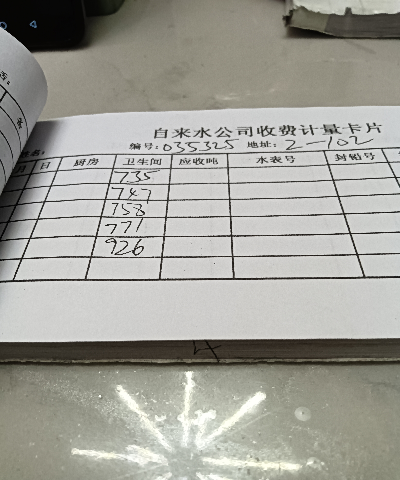 自来水公司收费计量卡片
编号: 035325 地址: 2-102
月 日 厨房 卫生间 应收吨 水表号 封铅号
735
747
758
771
926